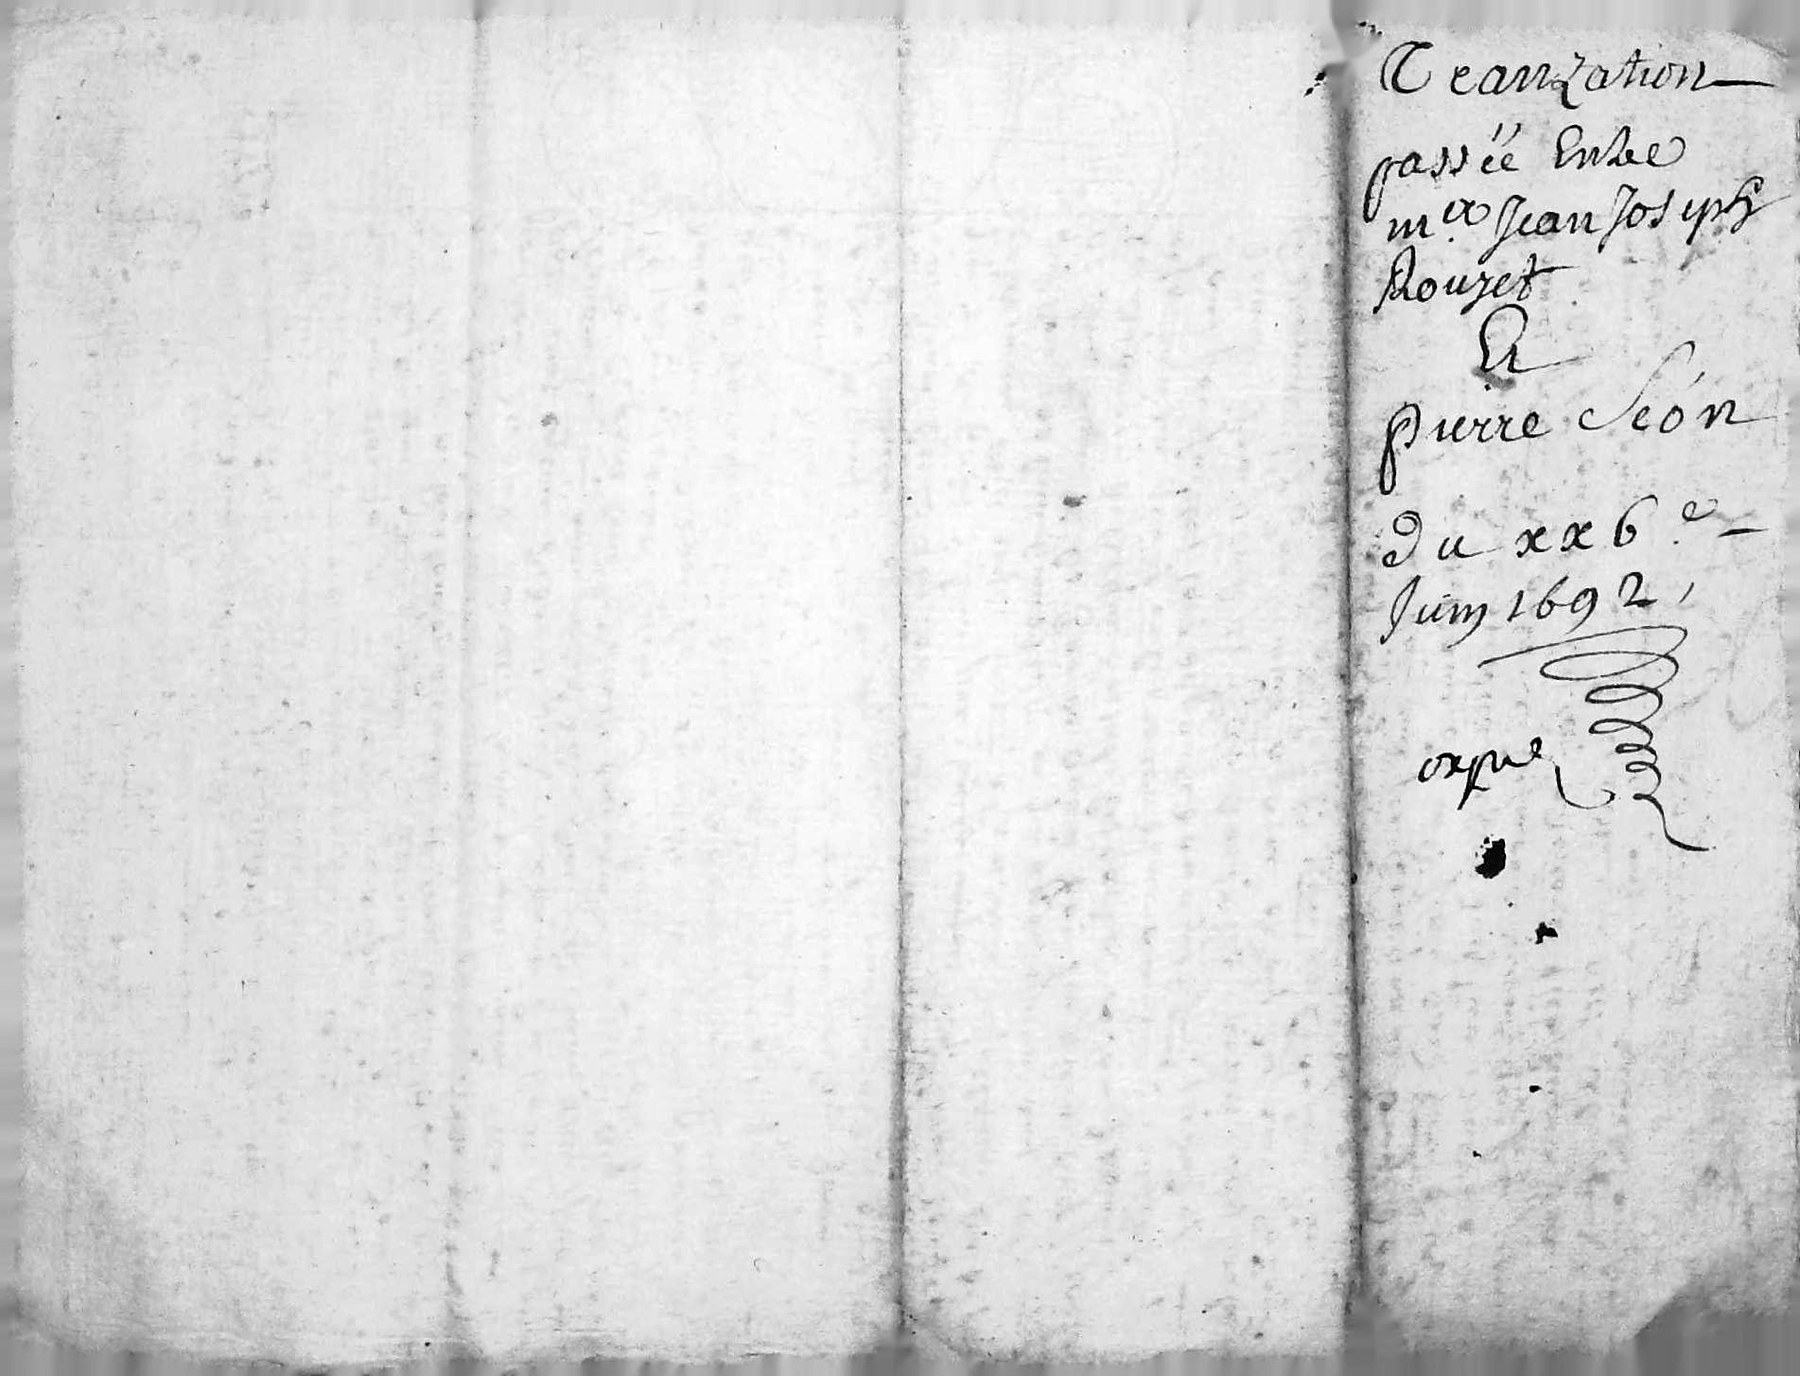 Tranzation
passéé Entre
mer Jean Joseph
Rouzet
Et
pierre Séon
du xx6e
Juin 1692,